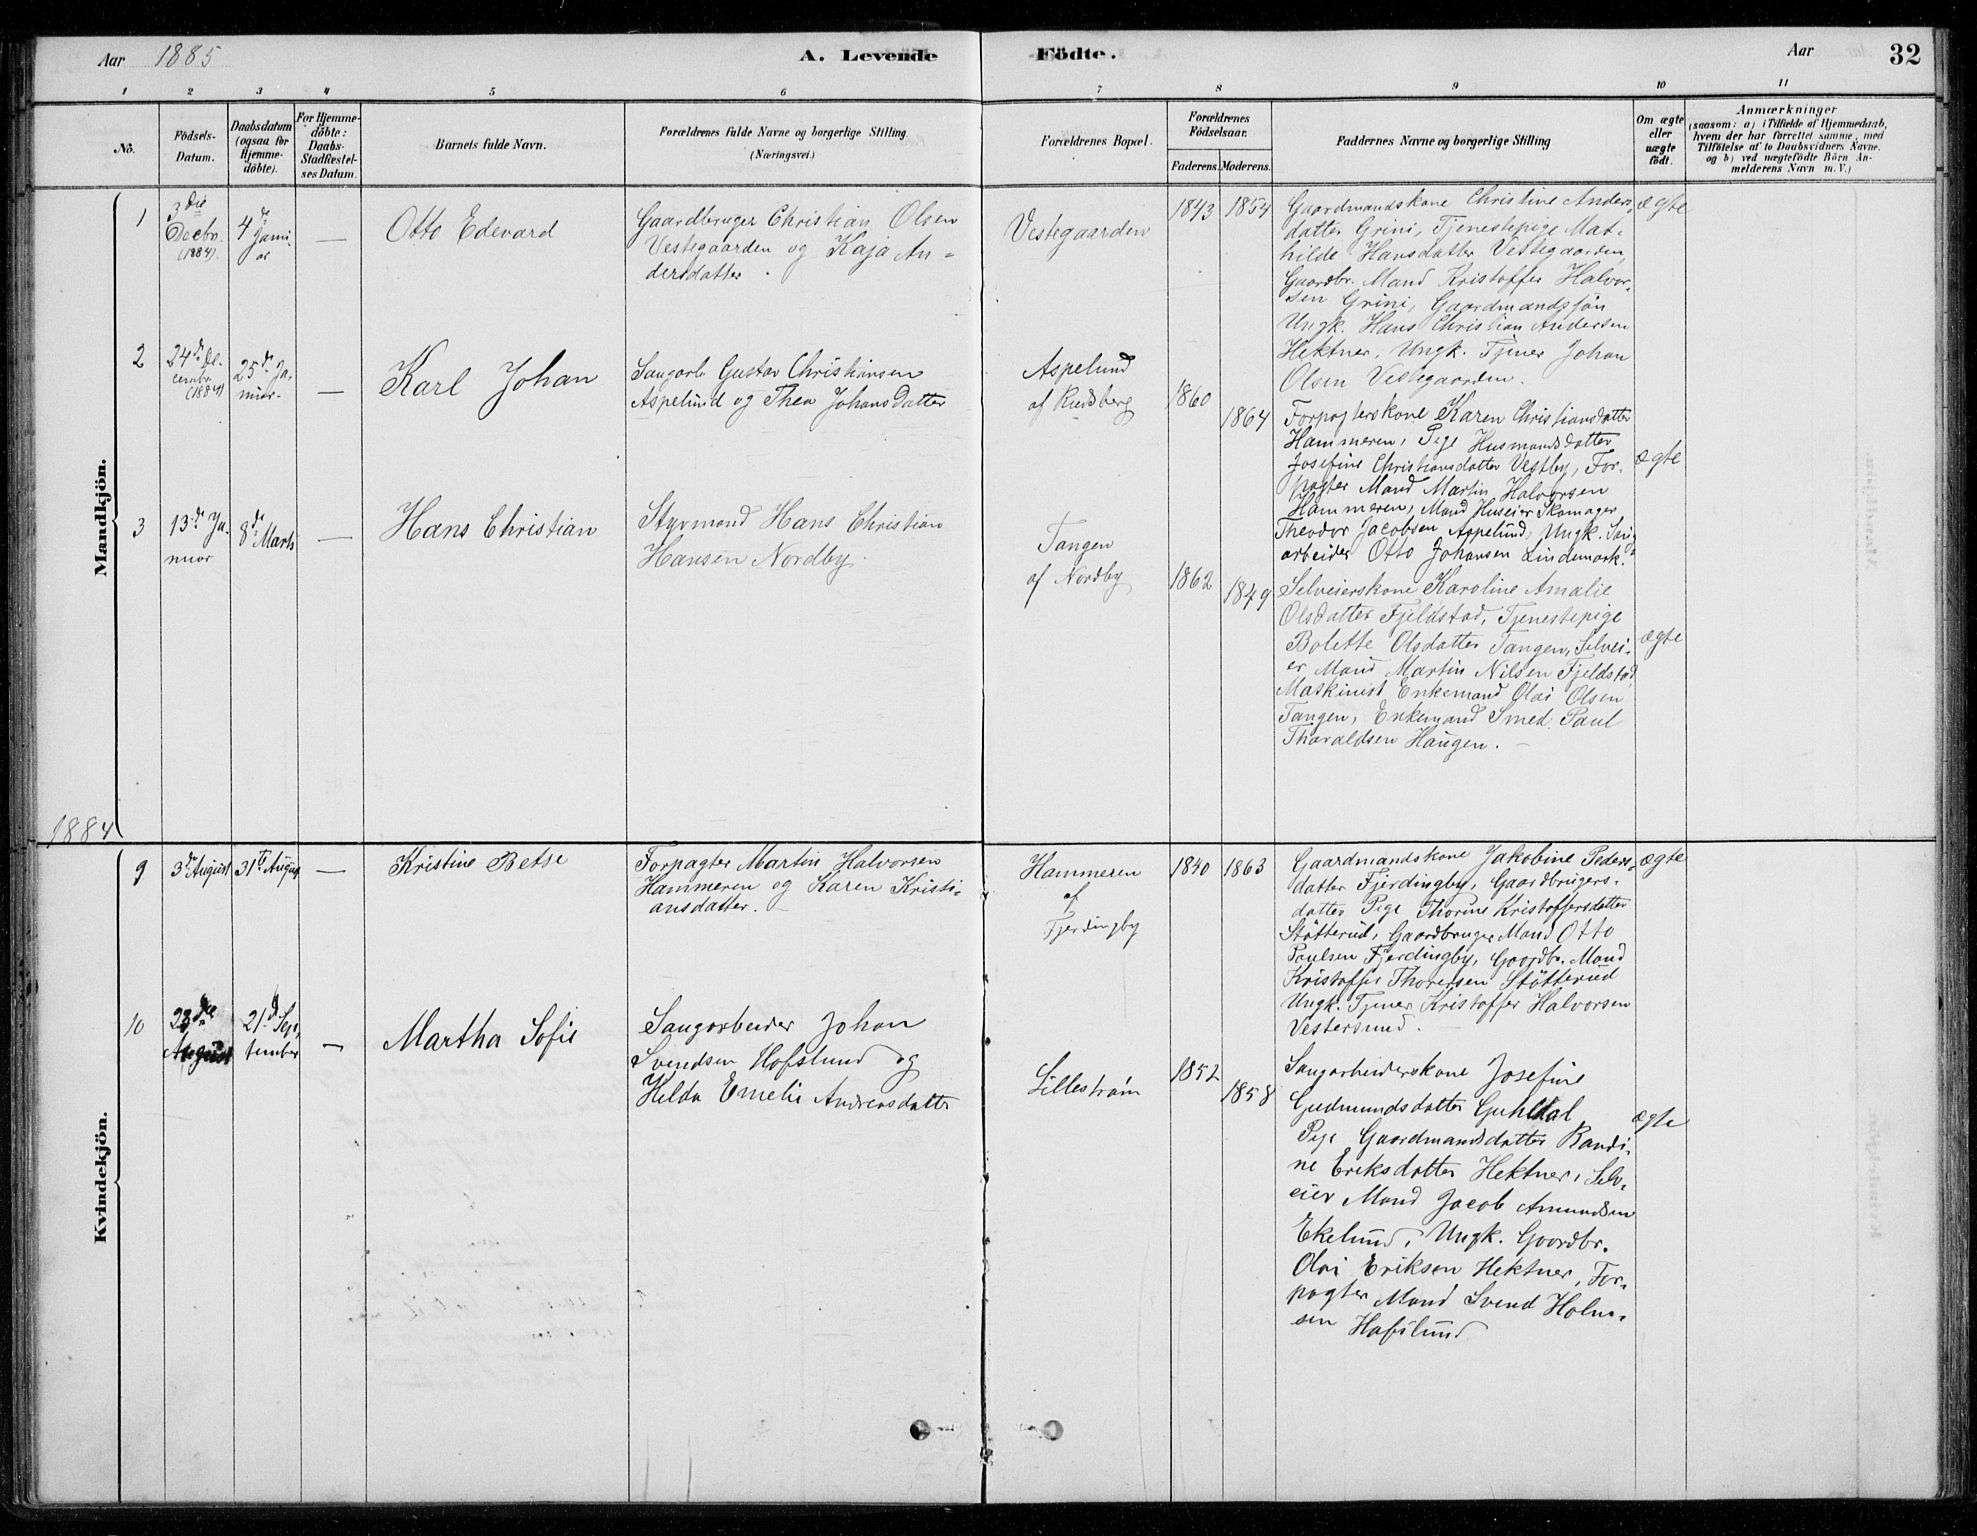 Aar 1885
A. Levende Födte.
Aar
32
1 2 3 4 5 6 7 8 9 10 11
No.
Födsels-
Datum.
Daabsdatum
(ogsaa for
Hjemme-
döbte).
For Hjemme-
döbte:
Daabs-
Stadfæstel-
ses Datum.
Barnets fulde Navn.
Forældrenes fulde Navne og borgerlige Stilling
(Næringsvei.)
Forældrenes Bopæl.
Forældrenes
Födselsaar.
Faderens. Moderens.
Faddernes Navne og borgerlige Stilling
Om ægte
eller
uægte
födt.
Anmærkninger
(saasom: a) i Tilfælde af Hjemmedaab,
hvem der har forrettet samme, med
Tilföielse af to Daabsvidners Navne.
og b) ved uægtefödte Börn An-
melderens Navn m.V.)
Mandkjön.
1
3die
Decbr.
(1884).
4de
Janu-
ar
—
Otto Edevard
Gaardbruger Christian Olsen
Vestegaarden og Kaja An-
dersdatter.
Vestegaarden
1843 1854
Gaardmandskone Christine Anders-
datter Grini, Tjenestepige Mat-
hilde Hansdatter Vestegaarden,
Gaardbr. Mand Kristoffer Halvor-
sen Grini, Gaardmandssön
Ungk. Hans Christian Andersen
Hektner, Ungk. Tjener Johan
Olsen Vestegaarden.
ægte
2
24de De-
cembr.
(1884)
25de Ja-
nuar.
—
Karl Johan
Saugarb. Gustav Christiansen
Aspelund og Thea Johansdatter
Aspelund
af Rudsberg
1860
1864
Forpagterskone Karen Christiansdatter
Hammeren, Pige Husmandsdatter
Josefine Christiansdatter Vestby, For-
pagter Mand Martin Halvorsen
Hammeren, Mand Huseier Skomager
Theodor Jacobsen Aspelund, Ungk. Saug-
arbeider Otto Johansen Lindemark.
ægte
3
13de Ja-
nuar
8de Marts
—
Hans Christian
Styrmand Hans Christian
Hansen Nordby.
Tangen
af Nordby
1862
1849
Selveierskone Karoline Amalie
Olsdatter Fjeldstad, Tjenestepige
Bolette Olsdatter Tangen, Selvei-
er Mand Martin Nilsen Fjeldstad
Maskinist Enkemand Olai Olsen
Tangen, Enkemand Smed Paul
Tharaldsen Haugen. —
ægte
1884
Kvindekjön.
9
3de August
31te Augus
—
Kristine Betse
Forpagter Martin Halvorsen
Hammeren og Karen Kristi-
ansdatter. —
Hammeren
af
Fjerdingby
1840 1863
Gaardmandskone Jakobine Peders-
datter Fjerdingby, Gaardbrugers-
datter Pige Thorine Kristoffersdatter
Stötterud, Gaardbruger Mand Otto
Paulsen Fjerdingby, Gaardbr. Mand
Kristoffer Thoresen Stötterud
Ungk. Tjener Kristoffer Halvorsen
Vestersund. —
ægte
10
23die
August
21de Sep-
tember
—
Martha Sofie
Saugarbeider Johan
Svendsen Hofslund og
Hilda Emelie Andreasdatter
Lillestrøm
1852
1858
Saugarbeiderskone Josefine
Gudmundsdatter Guldal
Pige Gaardmandsdatter Randi-
ne Eriksdatter Hektner, Selv-
eier Mand Jacob Amundsen
Ekelund, Ungk. Gaardbr.
Olai Eriksen Hektner, For-
pagter Mand Svend Holm-
sen Hafslund
ægte